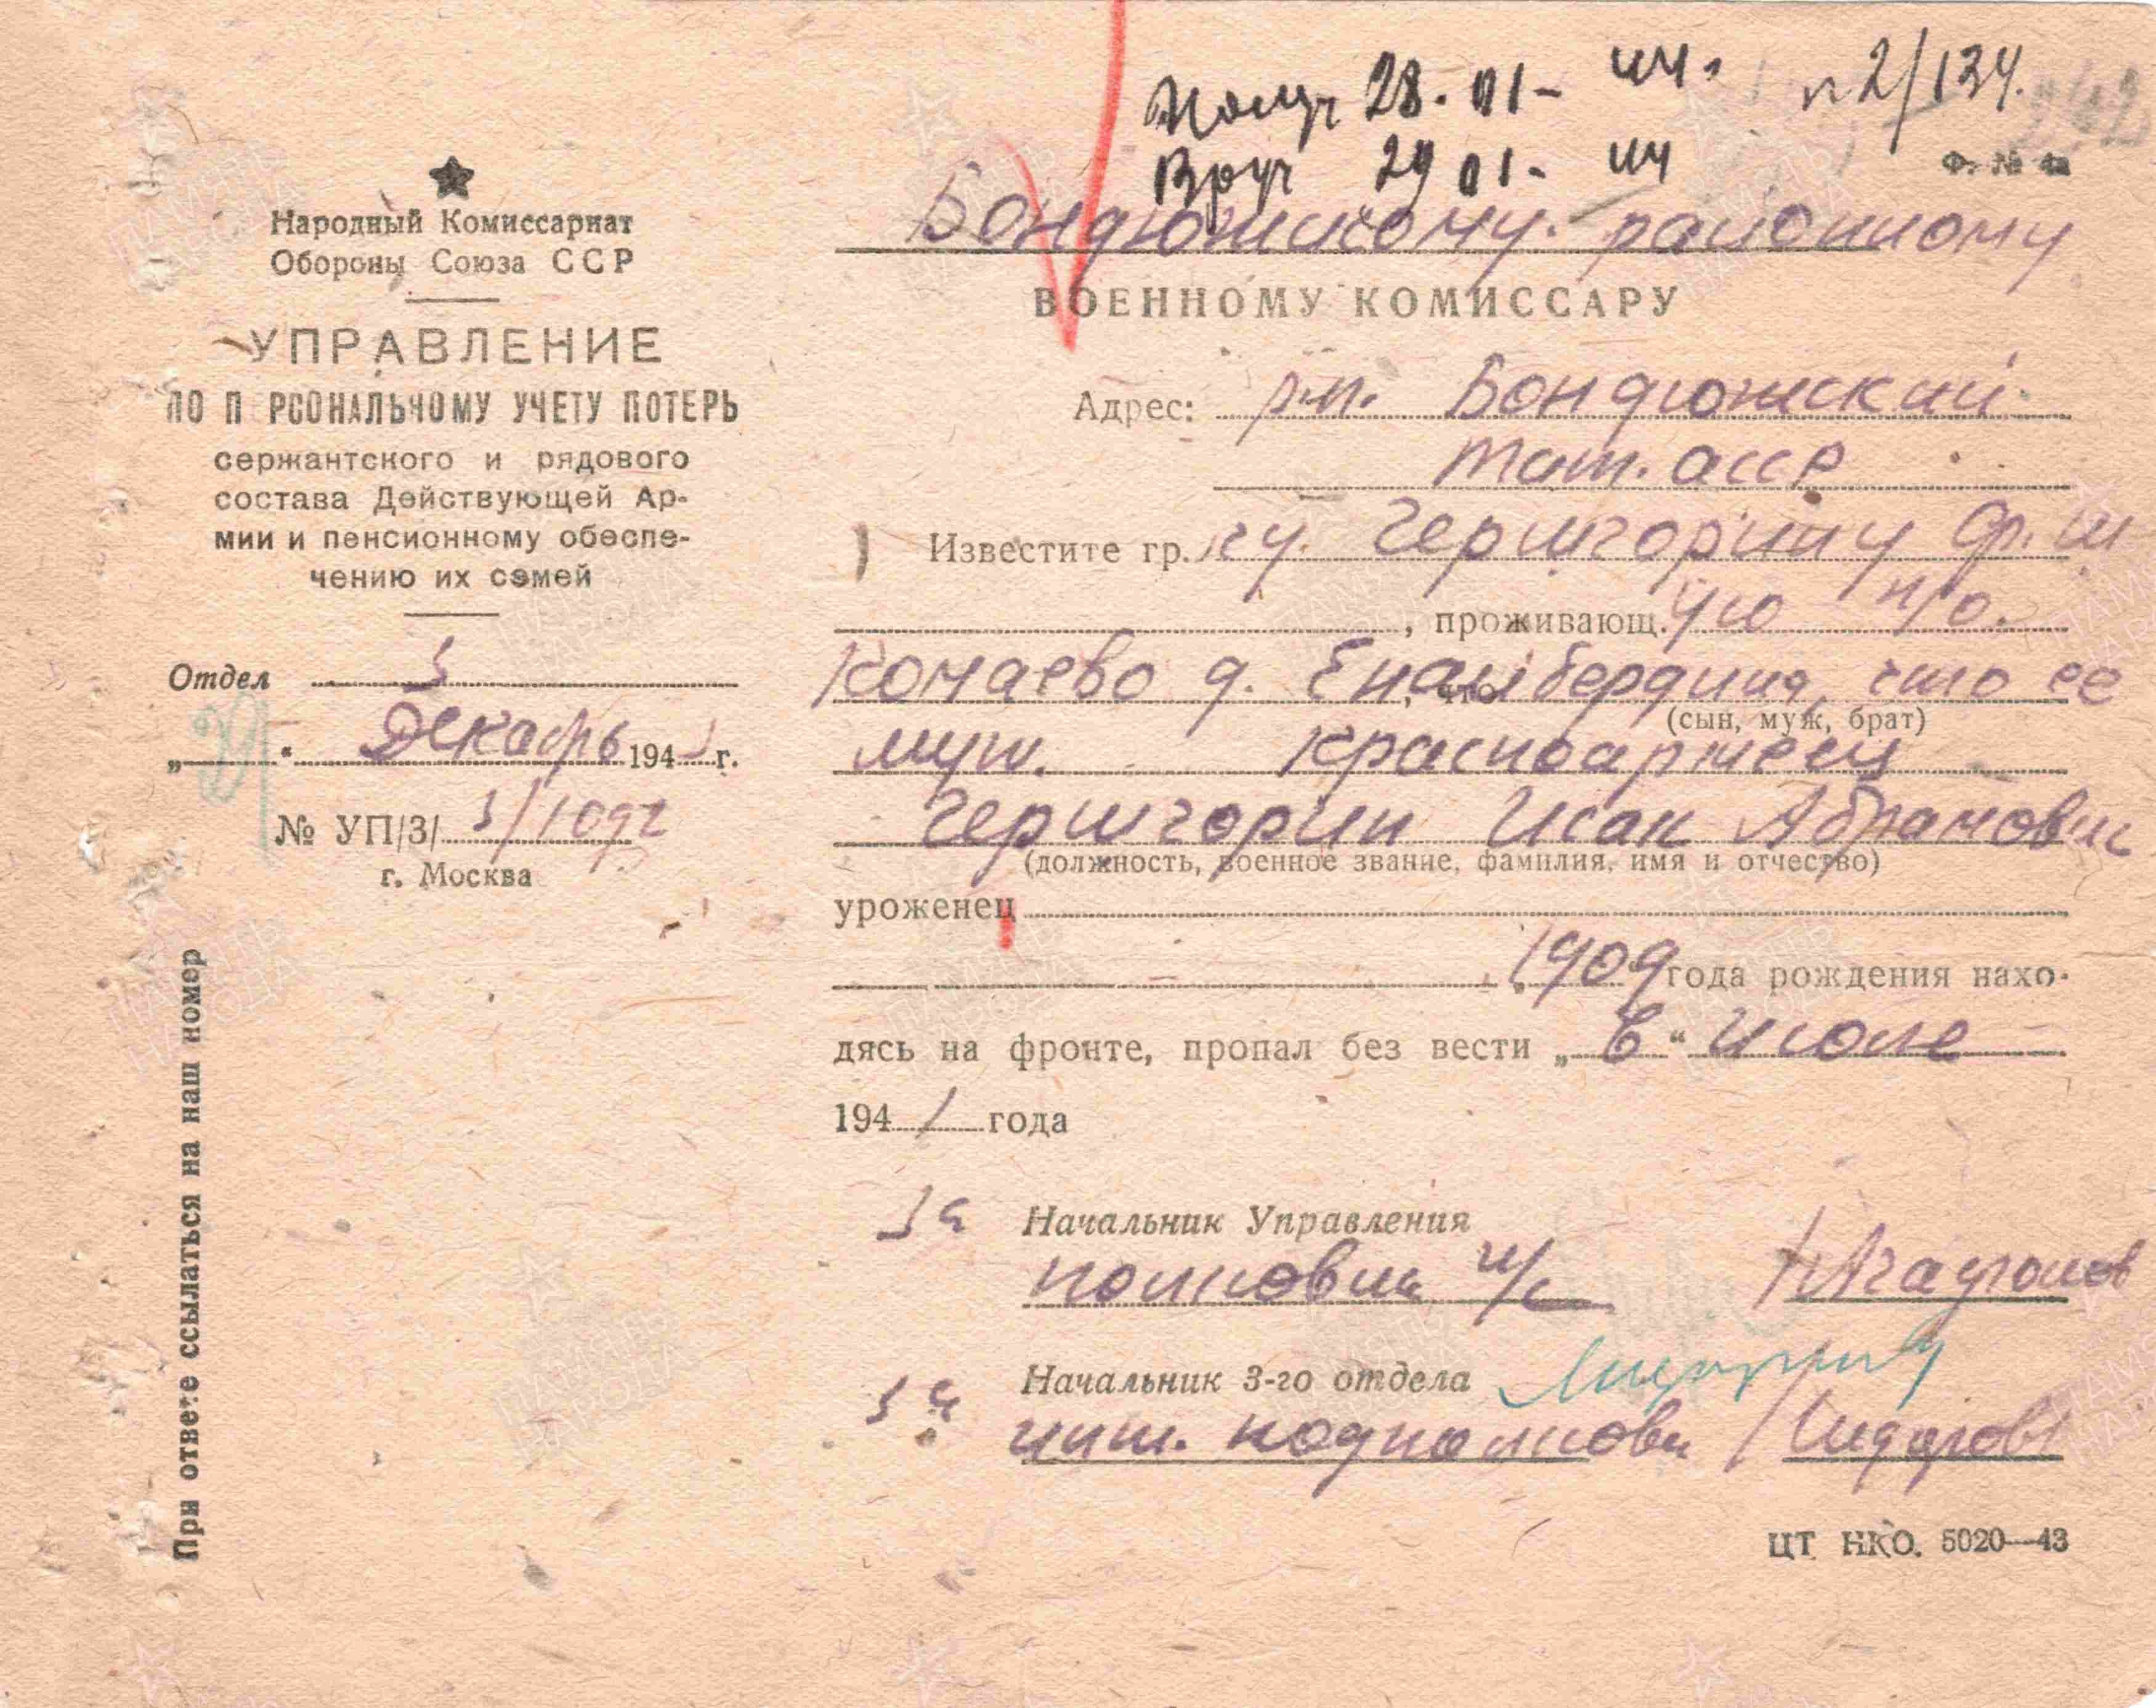 Получ 28.01-44. n2/134.
Вруч 29 01-44
Ф. № 4а
Народный Комиссариат
Обороны Союза ССР
УПРАВЛЕНИЕ
ПО П РСОНАЛЬНОМУ УЧЕТУ ПОТЕРЬ
сержантского и рядового
состава Действующей Ар-
мии и пенсионному обеспе-
чению их семей
Отдел 3
" " Декабрь 194 г.
№ УП/3/ 3/1092
г. Москва
При ответе ссылаться на наш номер
Бондюжскому районному
ВОЕННОМУ КОМИССАРУ
Адрес: р-п. Бондюжский
Тат. АССР
Известите гр. гу. Гершгорину Ф. Ш
, проживающ. ую п/о.
Комаево д. Енабердина, что ее
, что
(сын, муж, брат)
муж. красноармеец
Гершгорин Исак Абрамович
(должность, военное звание, фамилия, имя и отчество)
уроженец
, 1909 года рождения нахо-
дясь на фронте, пропал без вести „ в " июле
1941 года
За Начальник Управления
полковник и/с Агафонов
За Начальник 3-го отдела
инт. подполковн /Сидоров/
ЦТ НКО. 5020—43